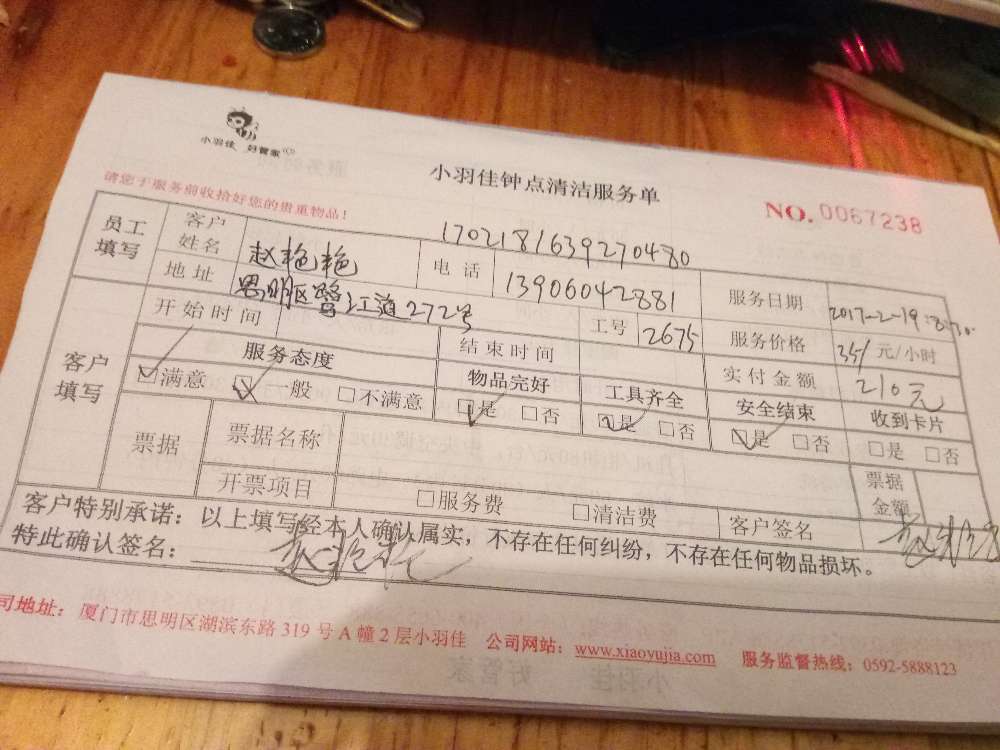 小羽佳 好管家
小羽佳钟点清洁服务单
请您于服务前收拾好您的贵重物品!
NO.0067238
1702181639270480
员工填写 客户姓名 赵艳艳 电话 13906042881 服务日期 2017-2-19
地址 思明区鹭江道272号 工号 2675 服务价格 35/元/小时
客户填写 开始时间 结束时间 实付金额 210元
服务态度 物品完好 工具齐全 安全结束 收到卡片
☑满意 ☑一般 □不满意 ☑是 □否 ☑是 □否 ☑是 □否 □是 □否
票据 票据名称 票据金额
开票项目 □服务费 □清洁费 客户签名
客户特别承诺:以上填写经本人确认属实,不存在任何纠纷,不存在任何物品损坏。
特此确认签名:
司地址:厦门市思明区湖滨东路319号A幢2层小羽佳 公司网站:www.xiaoyujia.com 服务监督热线:0592-5888123